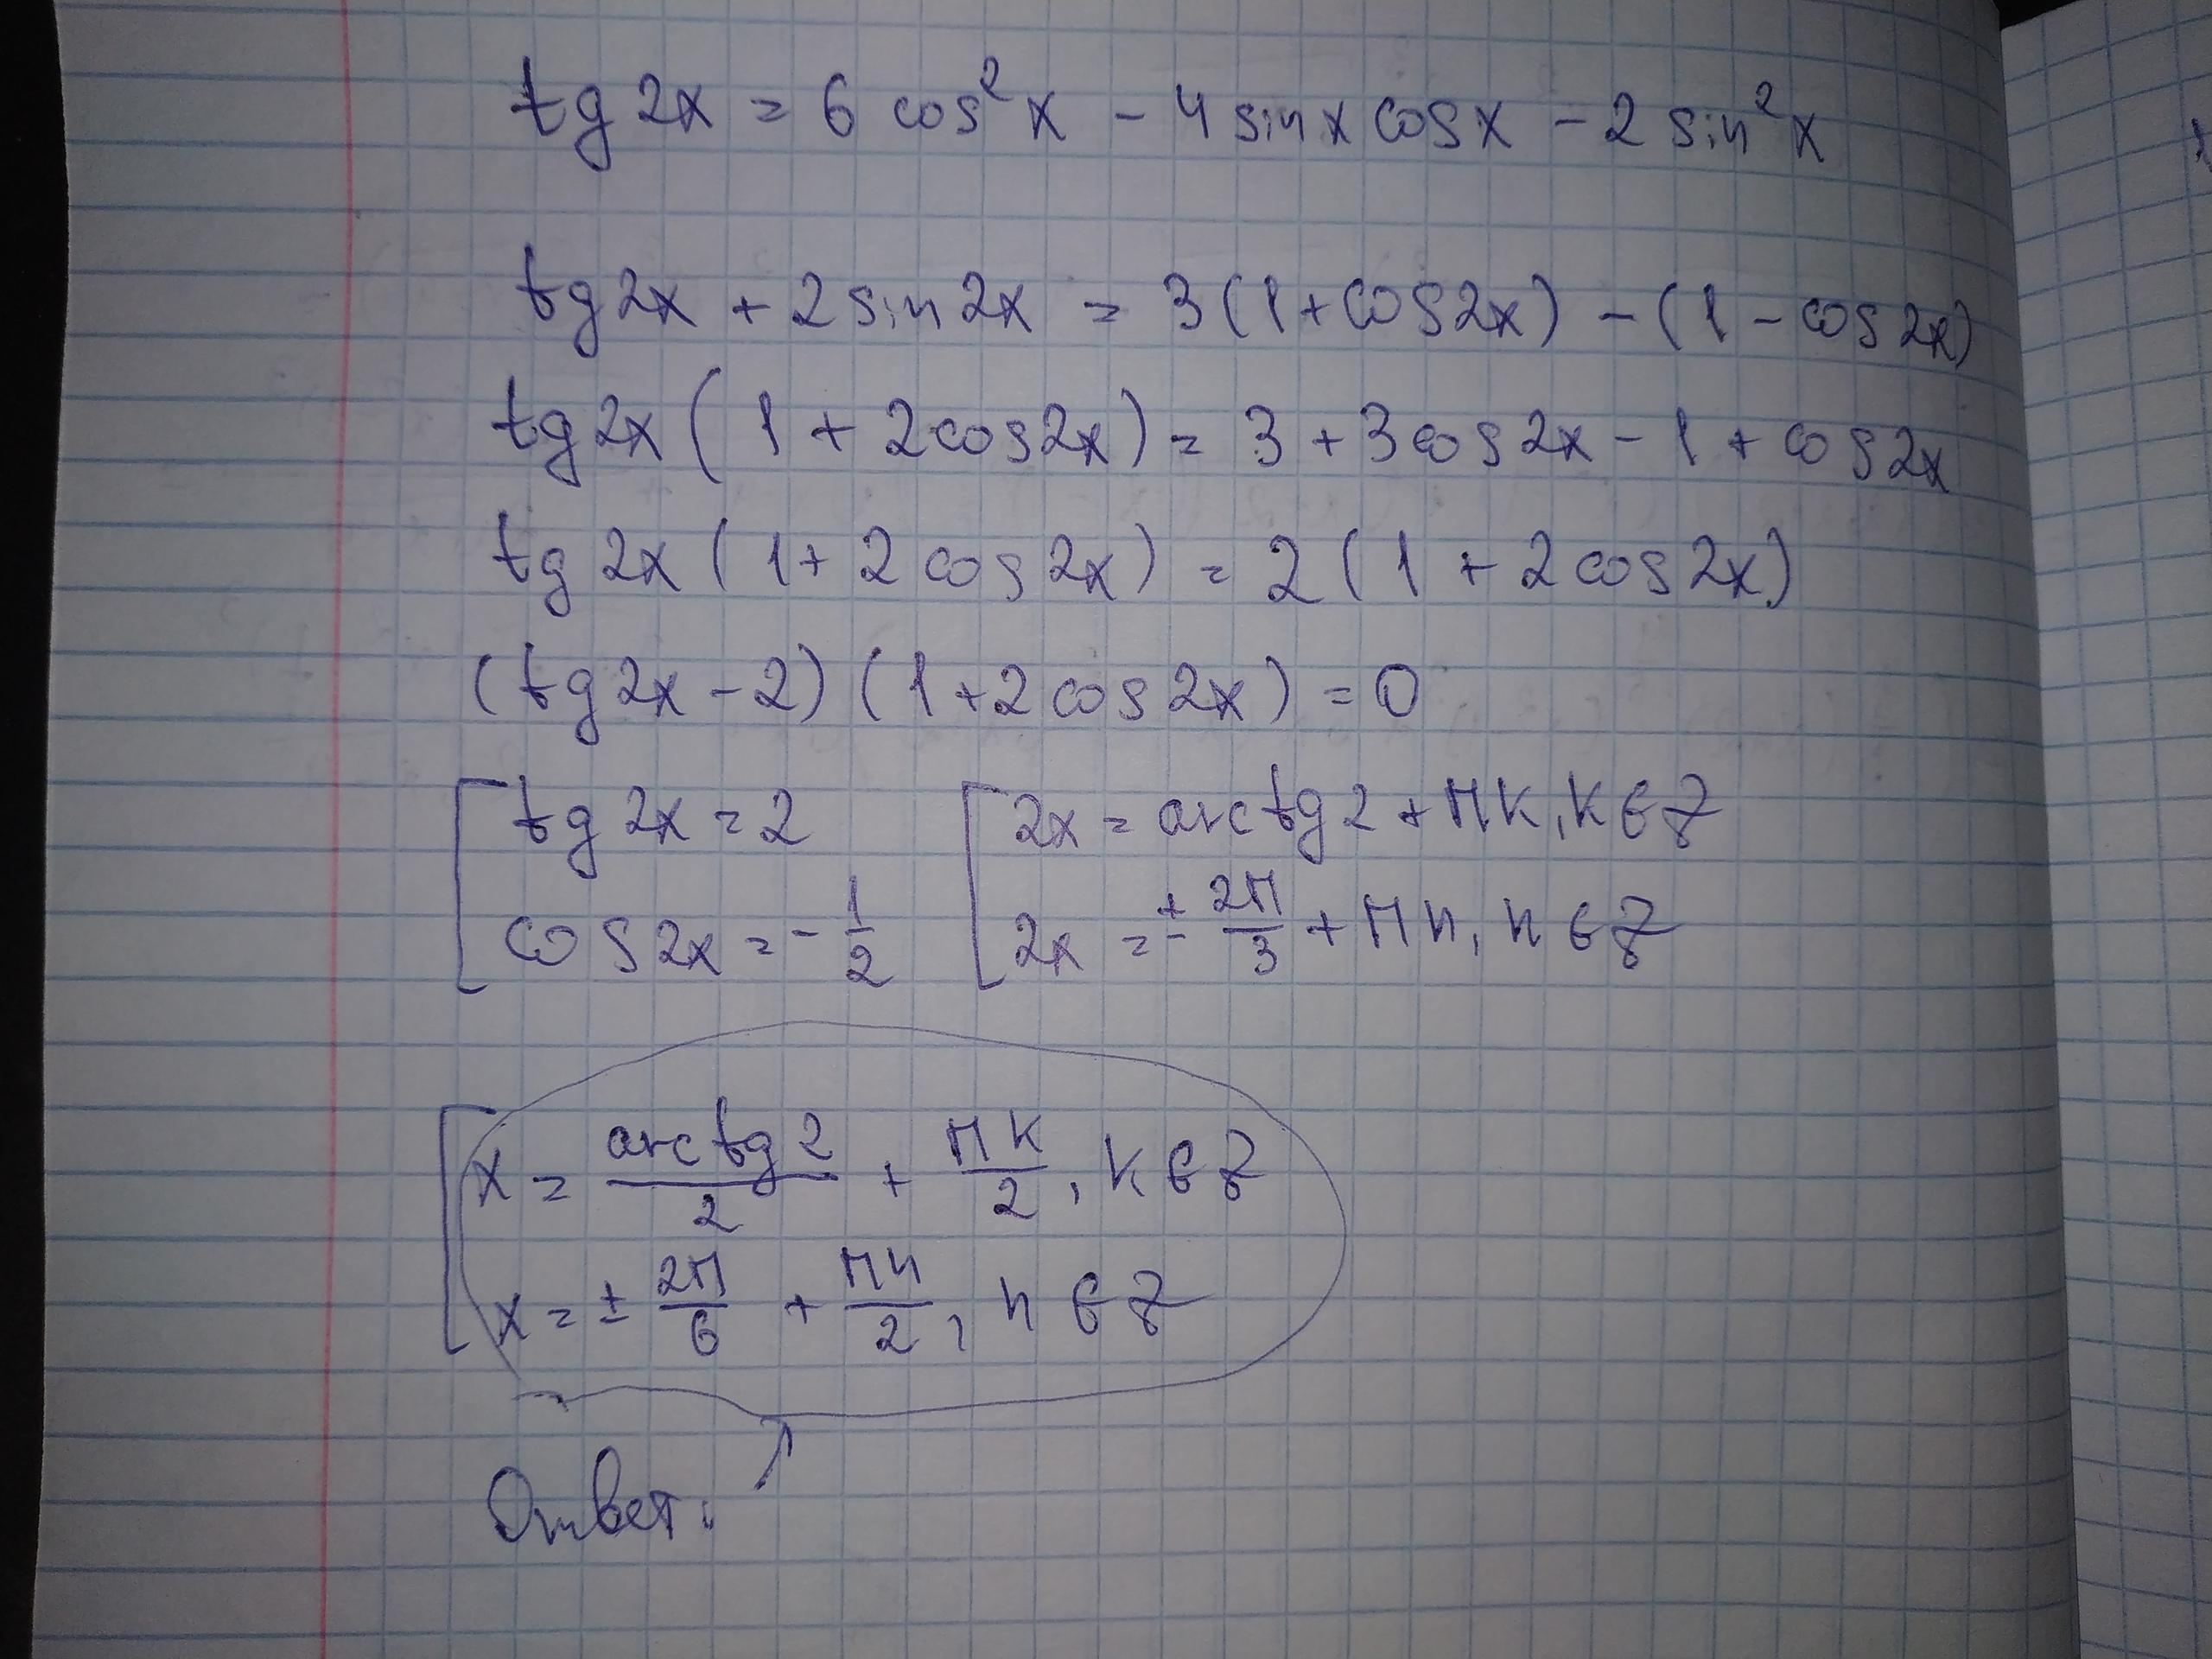 tg 2x = 6 cos²x - 4 sin x cos x - 2 sin²x
tg 2x + 2 sin 2x = 3(1 + cos 2x) - (1 - cos 2x)
tg 2x (1 + 2cos 2x) = 3 + 3cos 2x - 1 + cos 2x
tg 2x (1 + 2 cos 2x) = 2 (1 + 2 cos 2x)
(tg 2x - 2) (1 + 2 cos 2x) = 0
[ tg 2x = 2 [ 2x = arctg 2 + πk, k ∈ Z
cos 2x = - 1/2 2x = ± 2π/3 + πn, n ∈ Z
[ x = arctg 2/2 + πk/2, k ∈ Z
x = ± 2π/6 + πn/2, n ∈ Z
Ответ: ↑